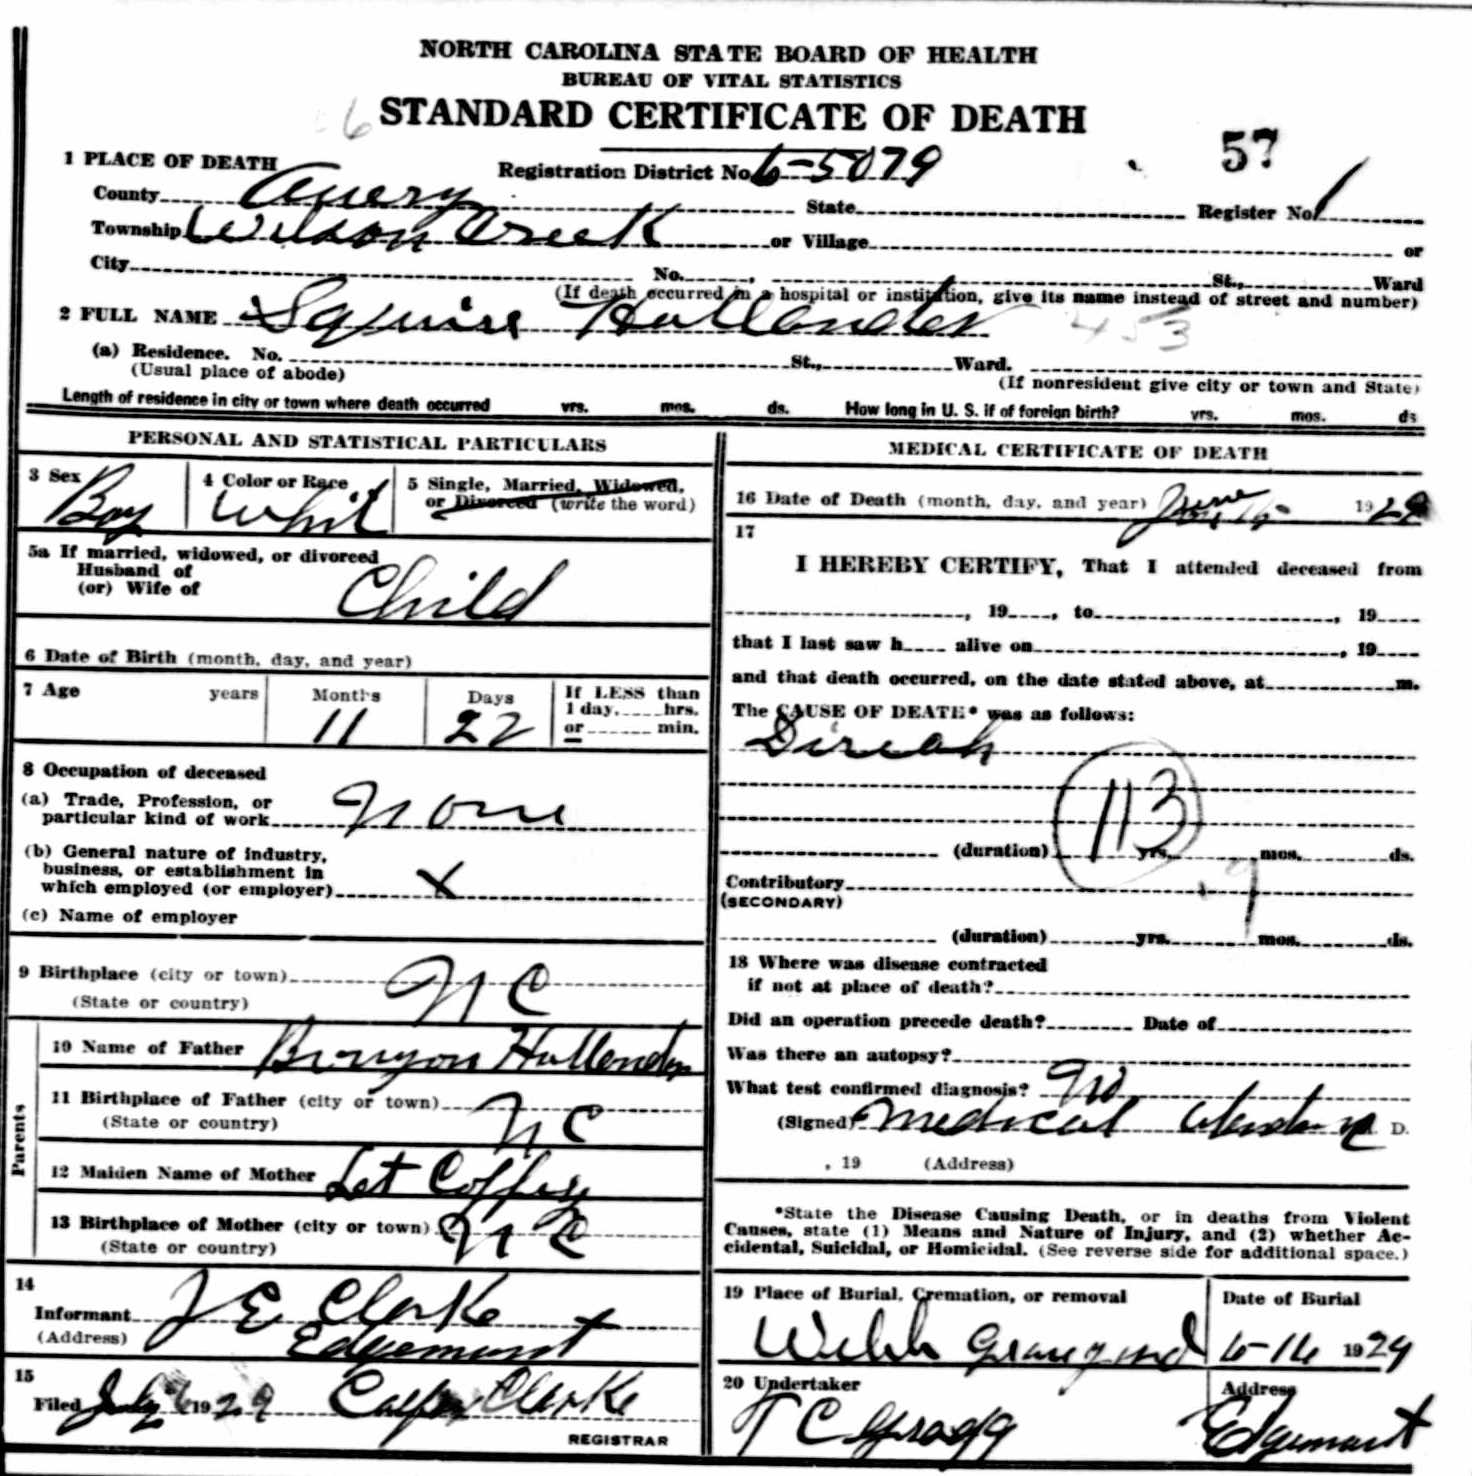 NORTH CAROLINA STATE BOARD OF HEALTH
BUREAU OF VITAL STATISTICS
6 STANDARD CERTIFICATE OF DEATH
57
1 PLACE OF DEATH
Registration District No. 6-5079
County Avery State Register No. 1
Township Wilson Creek or Village or
City No. , St., Ward
(If death occurred in a hospital or institution, give its name instead of street and number)
2 FULL NAME Squire Hollander 453
(a) Residence. No. St., Ward.
(Usual place of abode) (If nonresident give city or town and State)
Length of residence in city or town where death occurred yrs. mos. ds. How long in U. S. if of foreign birth? yrs. mos. ds
PERSONAL AND STATISTICAL PARTICULARS
3 Sex Boy
4 Color or Race Whit
5 Single, Married, Widowed, or Divorced (write the word)
5a If married, widowed, or divorced
Husband of
(or) Wife of
Child
6 Date of Birth (month, day, and year)
7 Age years Months 11 Days 22 If LESS than 1 day, hrs. or min.
8 Occupation of deceased
(a) Trade, Profession, or
particular kind of work None
(b) General nature of industry,
business, or establishment in
which employed (or employer) X
(c) Name of employer
9 Birthplace (city or town) N C
(State or country)
Parents
10 Name of Father Hollender
11 Birthplace of Father (city or town) N C
(State or country)
12 Maiden Name of Mother Let Coffey
13 Birthplace of Mother (city or town) N C
(State or country)
14
Informant J E Clarke
(Address) Edgemont
15
Filed July 6 1929 Clarke
REGISTRAR
MEDICAL CERTIFICATE OF DEATH
16 Date of Death (month, day, and year) June 1929
17
I HEREBY CERTIFY, That I attended deceased from
, 19 , to , 19
that I last saw h alive on , 19
and that death occurred, on the date stated above, at m.
The CAUSE OF DEATH* was as follows:
Direah
113
(duration) yrs. mos. ds.
Contributory 9
(SECONDARY)
(duration) yrs. mos. ds.
18 Where was disease contracted
if not at place of death?
Did an operation precede death? Date of
Was there an autopsy?
What test confirmed diagnosis? No
(Signed) medical D.
, 19 (Address)
*State the Disease Causing Death, or in deaths from Violent
Causes, state (1) Means and Nature of Injury, and (2) whether Ac-
cidental, Suicidal, or Homicidal. (See reverse side for additional space.)
19 Place of Burial, Cremation, or removal
Webb
Date of Burial
6-16 1929
20 Undertaker
T C Gragg
Address
Edgemont